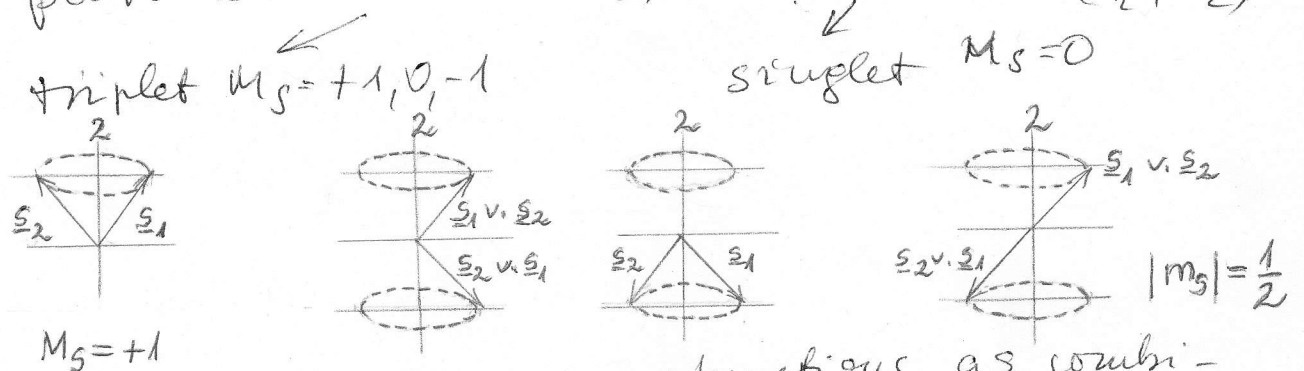 triplet M_S = +1, 0, -1
singlet M_S = 0
z z z z
S_2 S_1
S_1 v. S_2
S_2 v. S_1
S_2 S_1
S_1 v. S_2
S_2 v. S_1
|m_s| = 1/2
M_S = +1
as combi-